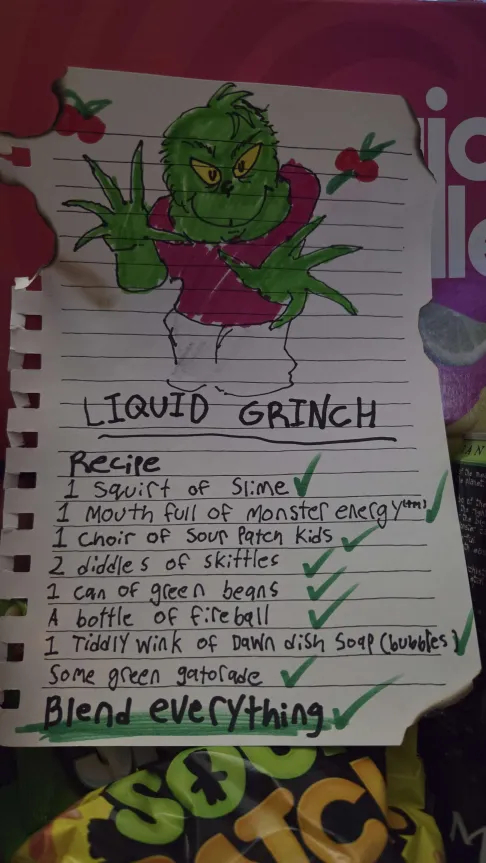 LIQUID GRINCH
Recipe
1 Squirt of Slime
1 Mouth full of Monster energy(tm)
1 Choir of Sour Patch kids
2 diddles of skittles
1 can of green beans
A bottle of fireball
1 Tiddly wink of Dawn dish Soap (bubbles)
Some green gatorade
Blend everything
SOUR
PATCH